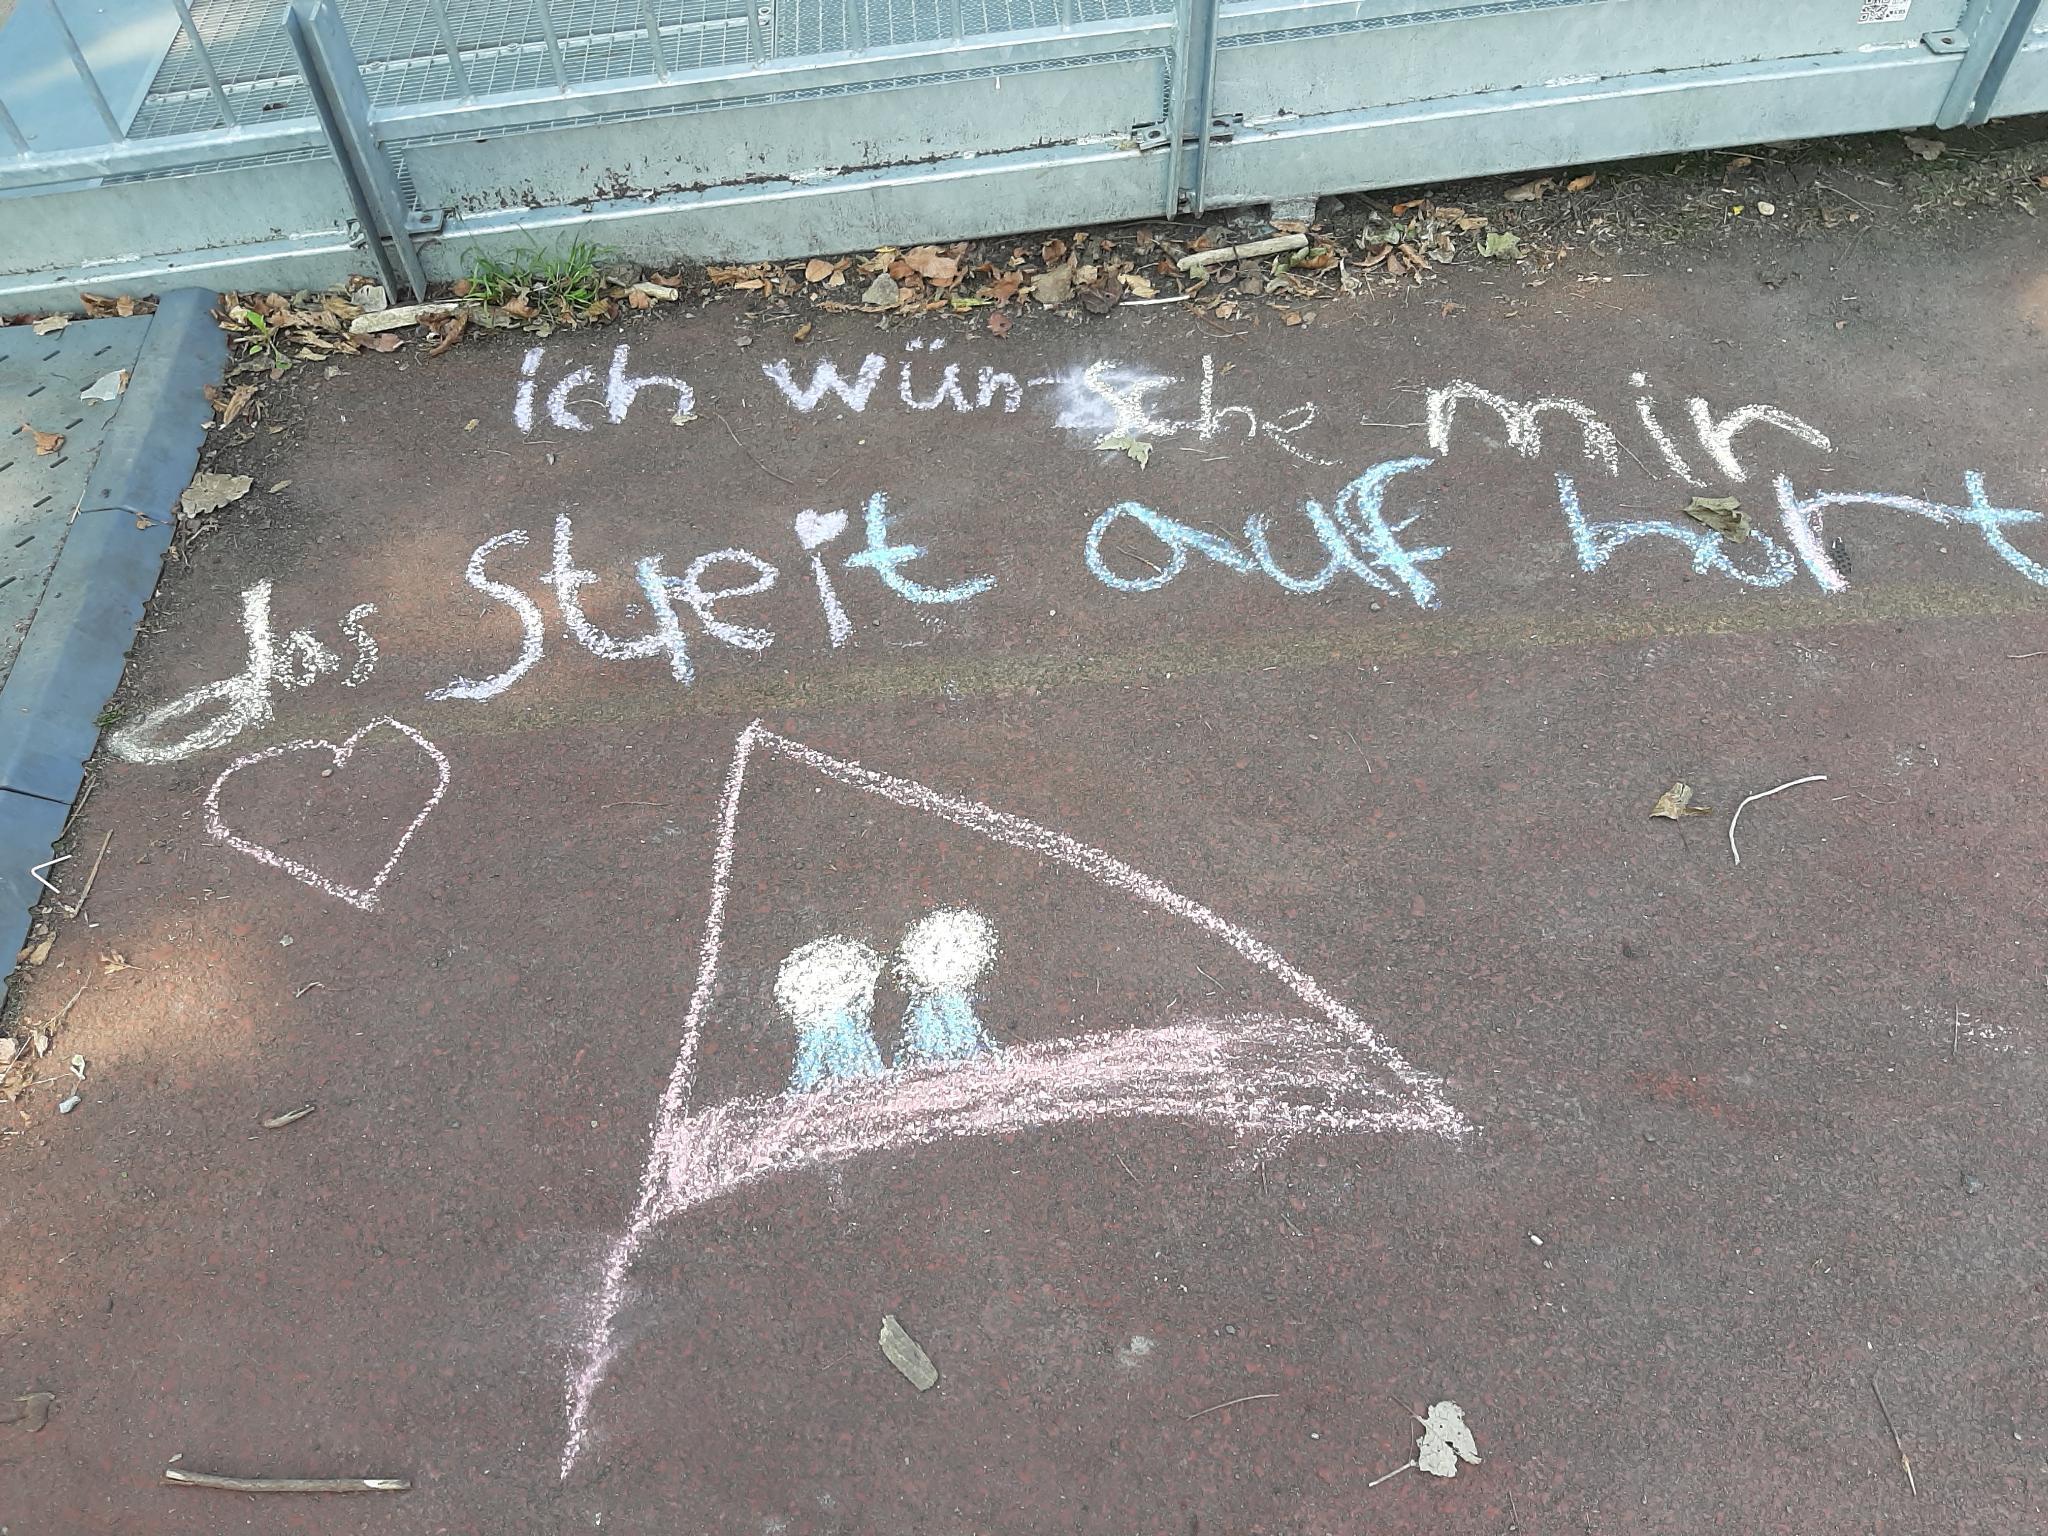 ich wün-sche mir
das Streit auf hört